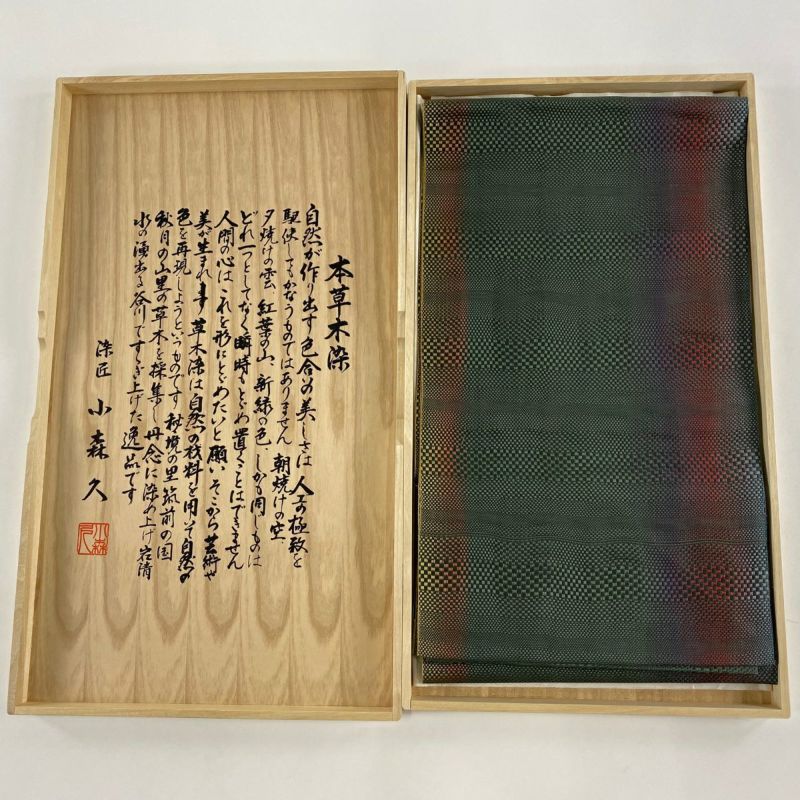 本草木染
自然が作り出す色合の美しさは 人工の極致を
駆使してもかなうものではありません 朝焼けの空、
夕焼けの雲 紅葉の山、新緑の色、しかも同じものは
どれ一つとしてなく瞬時もとどめ置くことはできません
人間の心は これを形にとどめたいと願い そこから芸術や
美が生まれます 草木染は自然の材料を用いて自然の
色を再現しようというものです 秘境の里筑前の国
秋月の山里の草木を採集し丹念に染め上げ岩清
水の湧出る谷川ですすぎ上げた逸品です
染匠 小森久
小森久